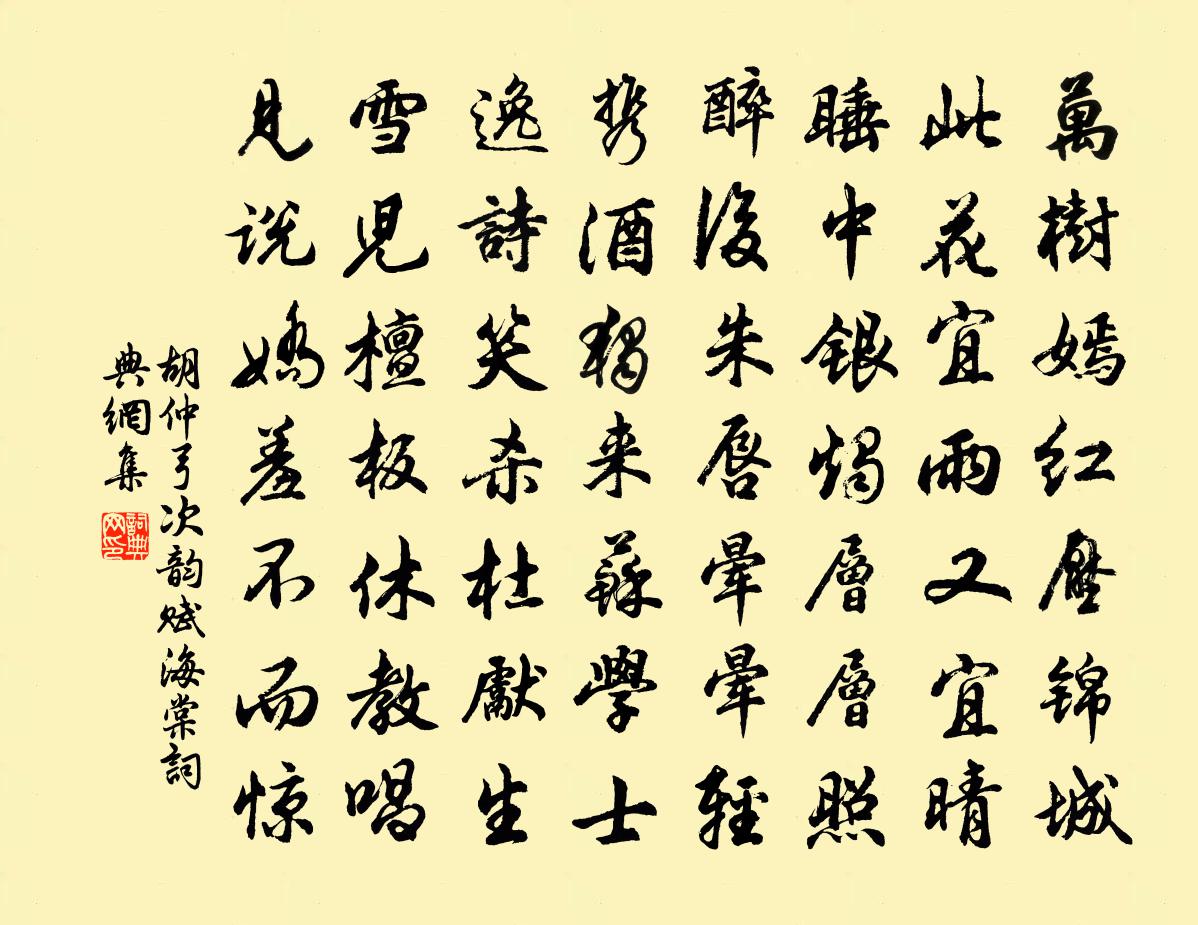 萬樹嫣红壓锦城
此花宜雨又宜晴
睡中銀燭層層照
醉後朱唇暈暈輕
携酒獨来蘇學士
逸詩笑杀杜獻生
雪児檀板休教唱
見说嬌羞不而惊
胡仲弓次韵赋海棠詞
典網集
詞典
网印